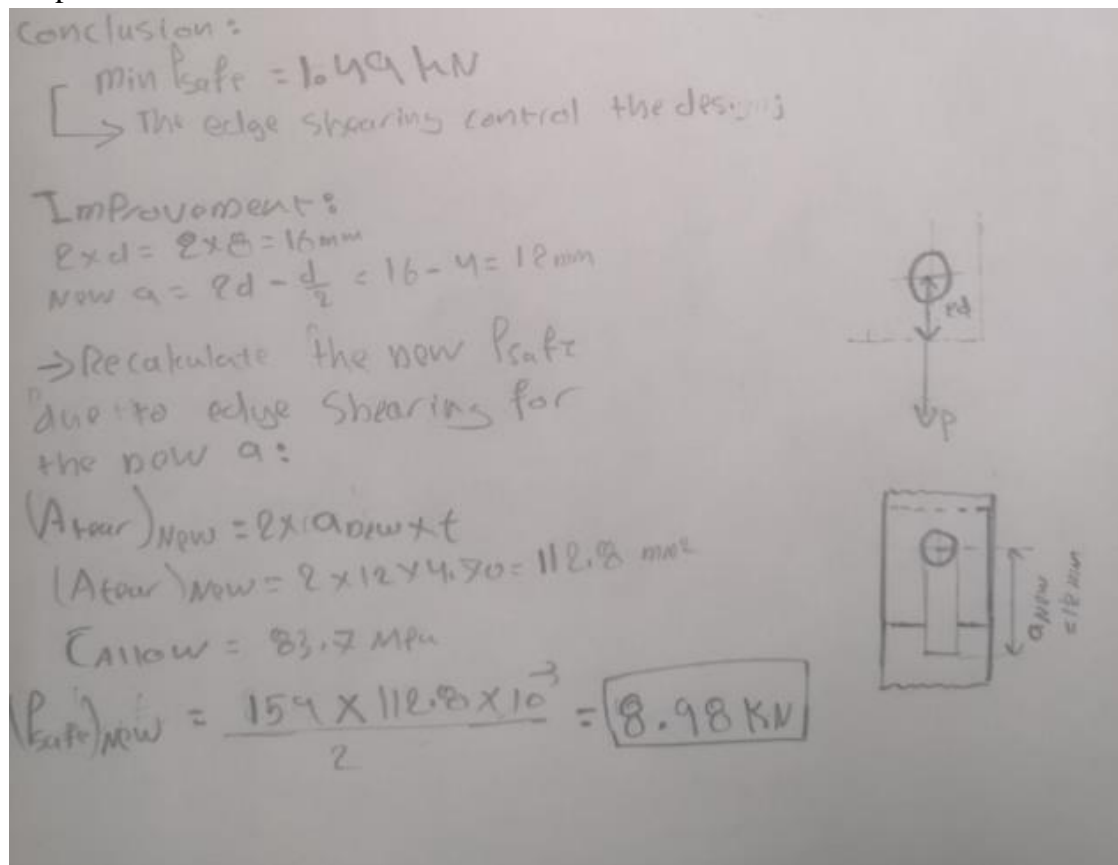 Conclusion:
min Psafe = 1.49 kN
→ The edge shearing control the design
Improvement:
2xd = 2x8 = 16mm
New a = 2d - d/2 = 16 - 4 = 12 mm
→ Recalculate the new Psafe
due to edge Shearing for
the new a:
(Atear)New = 2 x anew x t
(Atear)New = 2 x 12 x 4.70 = 112.8 mm²
τAllow = 83.7 MPa
(Psafe)New = 159 x 112.8 x 10⁻³ / 2 = 8.98 KN
2d
P
aNew
= 12 mm